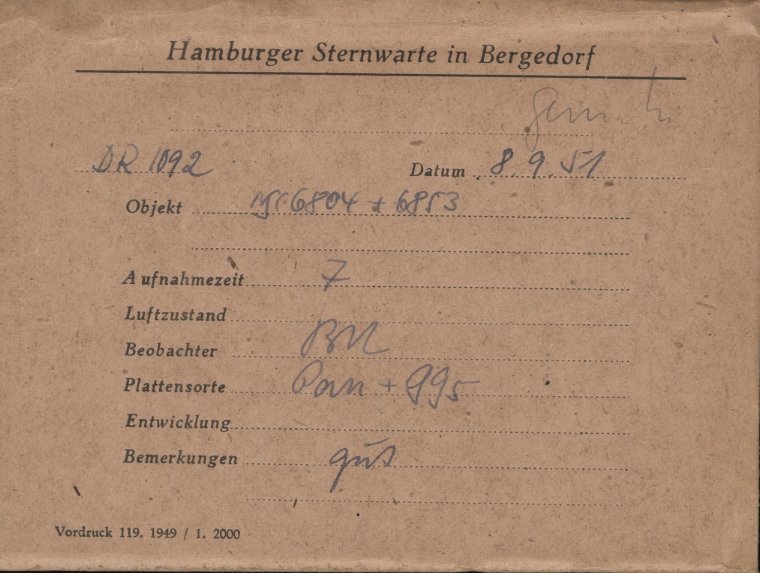 Hamburger Sternwarte in Bergedorf
DR 1092 Datum 8.9.51
Objekt NGC 6804 + 6853
Aufnahmezeit 7
Luftzustand
Beobachter
Plattensorte Pan + GG5
Entwicklung
Bemerkungen gut
Vordruck 119. 1949 / 1. 2000